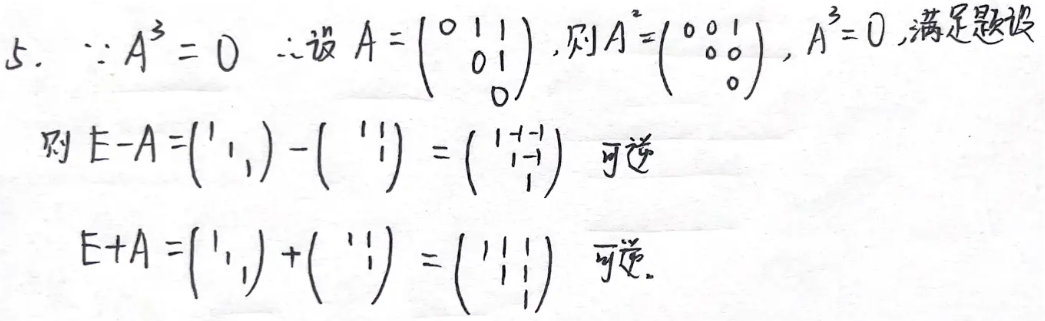 5. ∵ A³ = 0 ∴设 A = ( 0 1 1 ; 0 1 ; 0 ), 则 A² = ( 0 0 1 ; 0 0 ; 0 ), A³ = 0, 满足题设
则 E-A = ( 1 ; 1 ; 1 ) - ( 1 1 ; 1 ) = ( 1 -1 -1 ; 1 -1 ; 1 ) 可逆
E+A = ( 1 ; 1 ; 1 ) + ( 1 1 ; 1 ) = ( 1 1 1 ; 1 1 ; 1 ) 可逆.